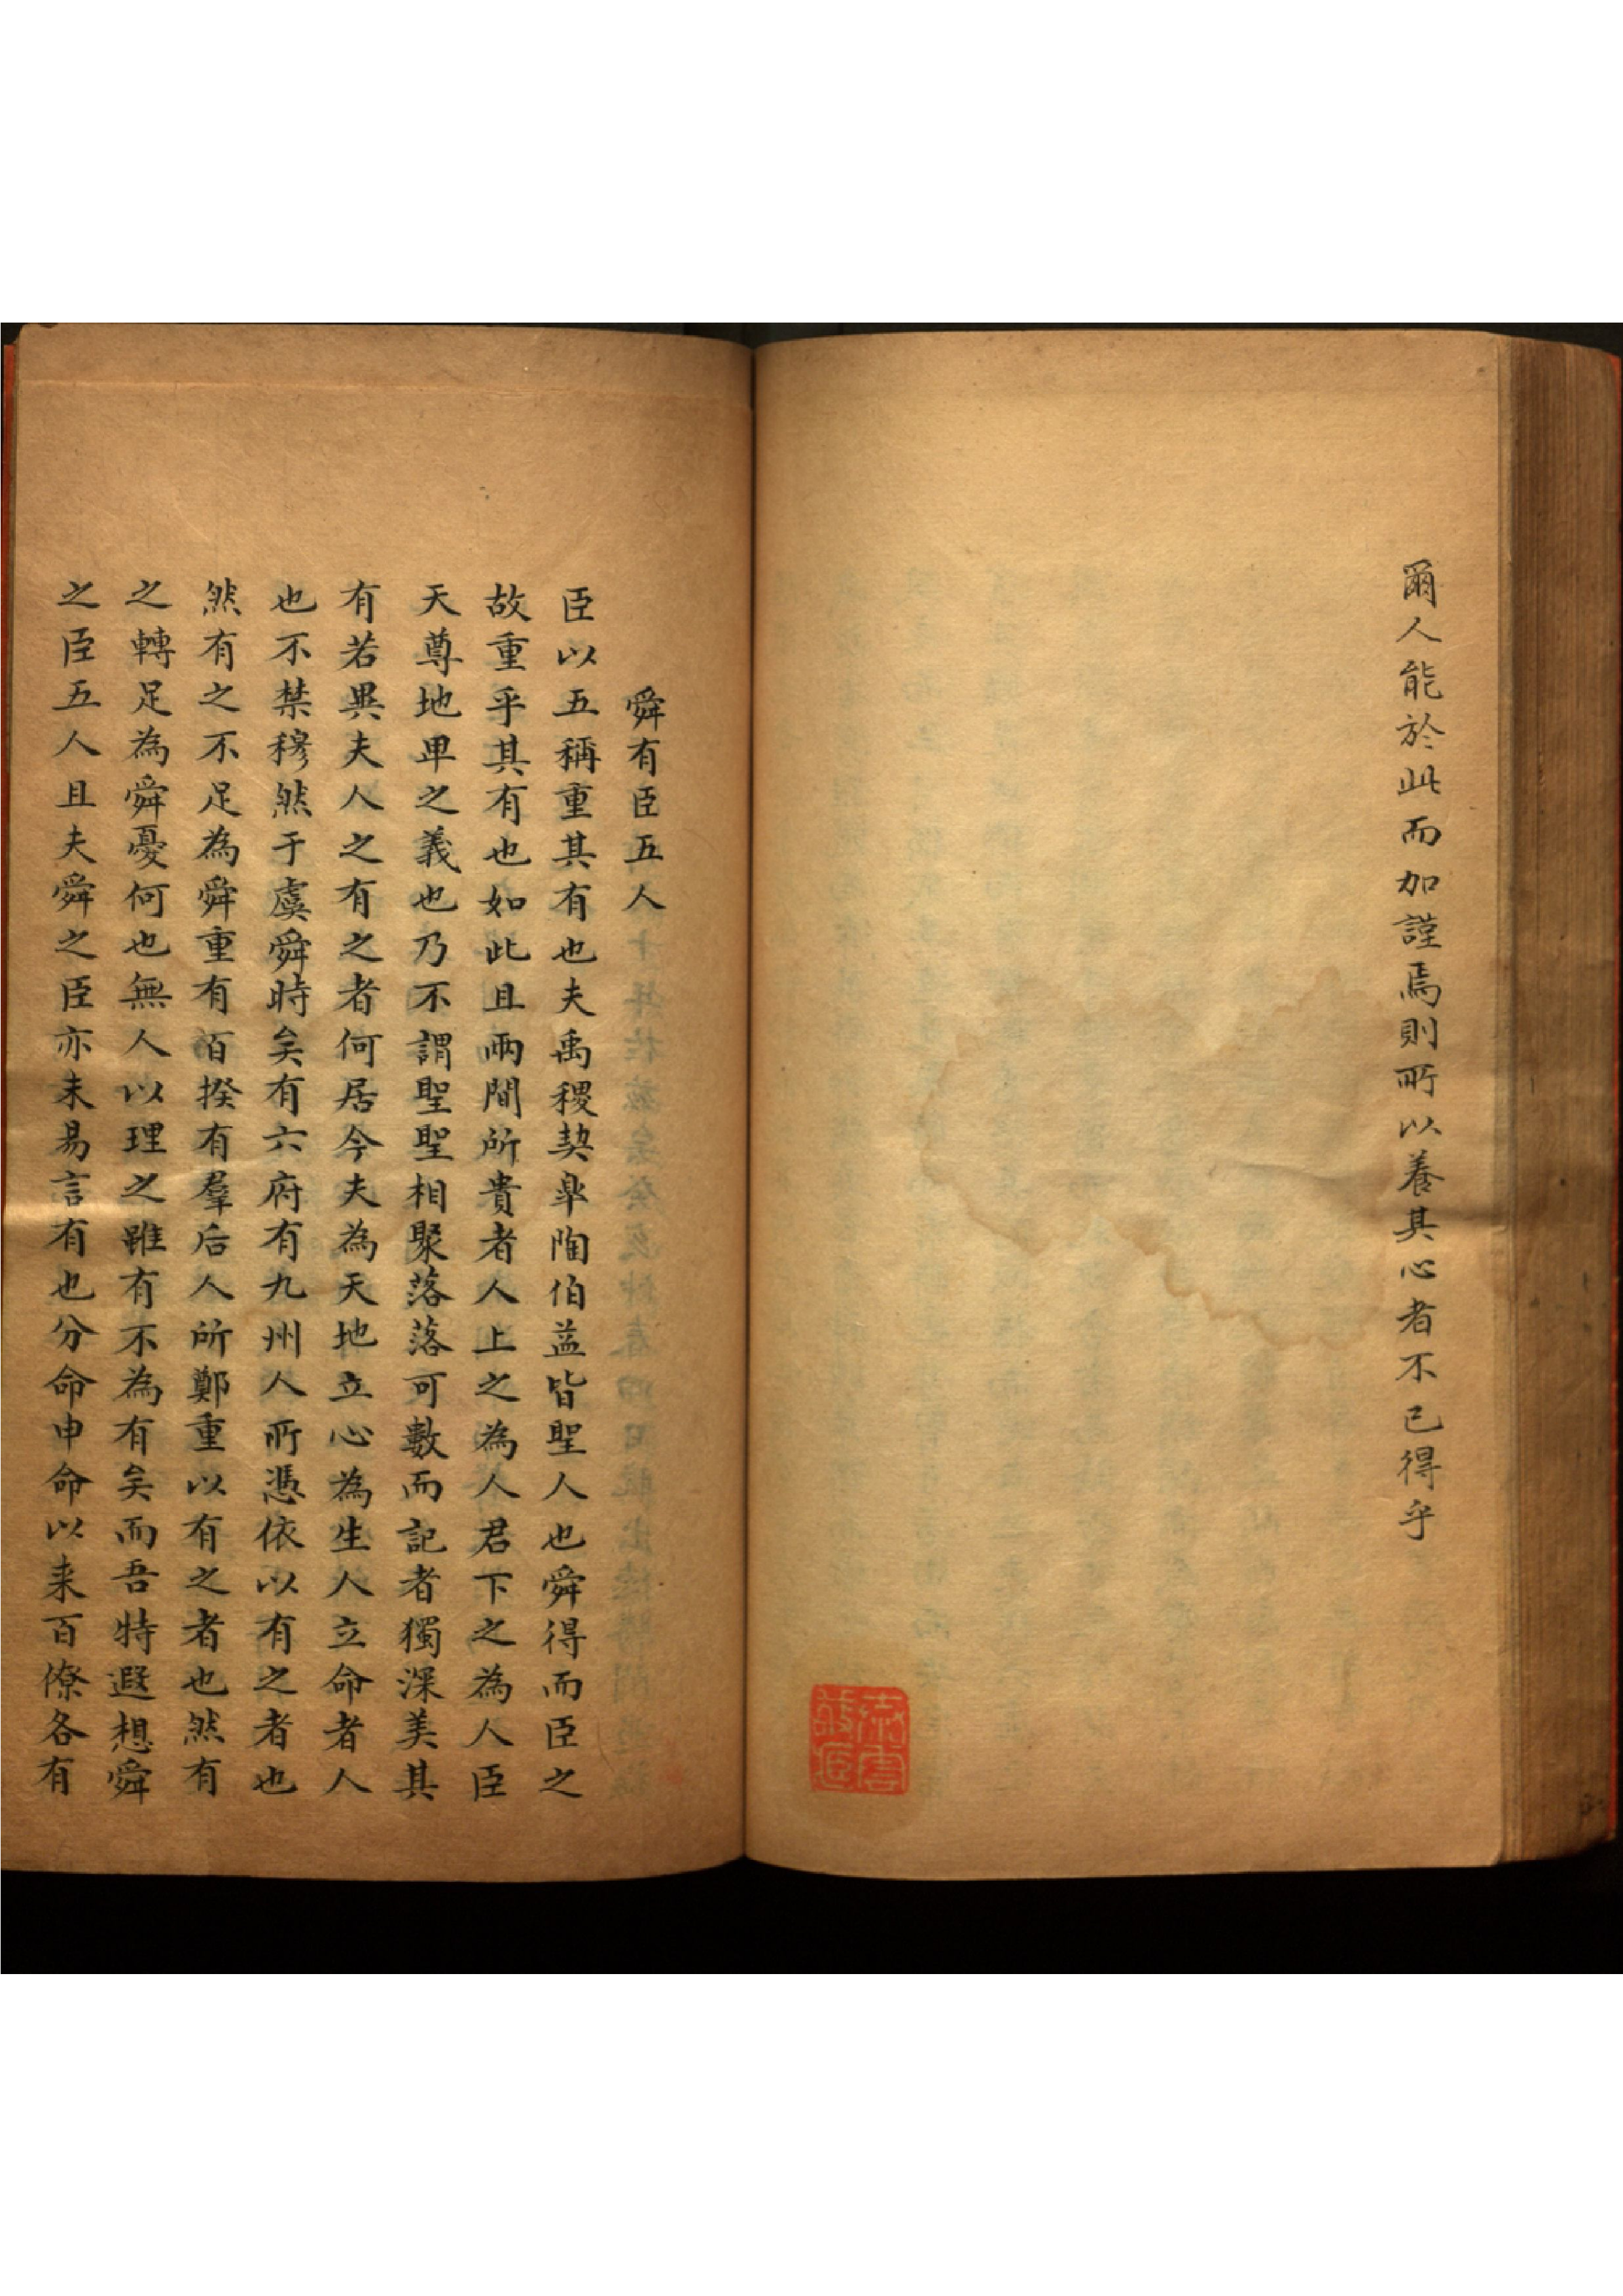 爾人能於此而加謹焉則所以養其心者不已得乎
舜有臣五人
臣以五稱重其有也夫禹稷契皋陶伯益皆聖人也舜得而臣之
故重乎其有也如此且兩間所貴者人上之為人君下之為人臣
天尊地卑之義也乃不謂聖聖相聚落落可數而記者獨深美其
有若異夫人之有之者何居今夫為天地立心為生人立命者人
也不禁穆然于虞舜時矣有六府有九州人所憑依以有之者也
然有之不足為舜重有百揆有羣后人所鄭重以有之者也然有
之轉足為舜憂何也無人以理之雖有不為有矣而吾特遐想舜
之臣五人且夫舜之臣亦未易言有也分命申命以来百僚各有